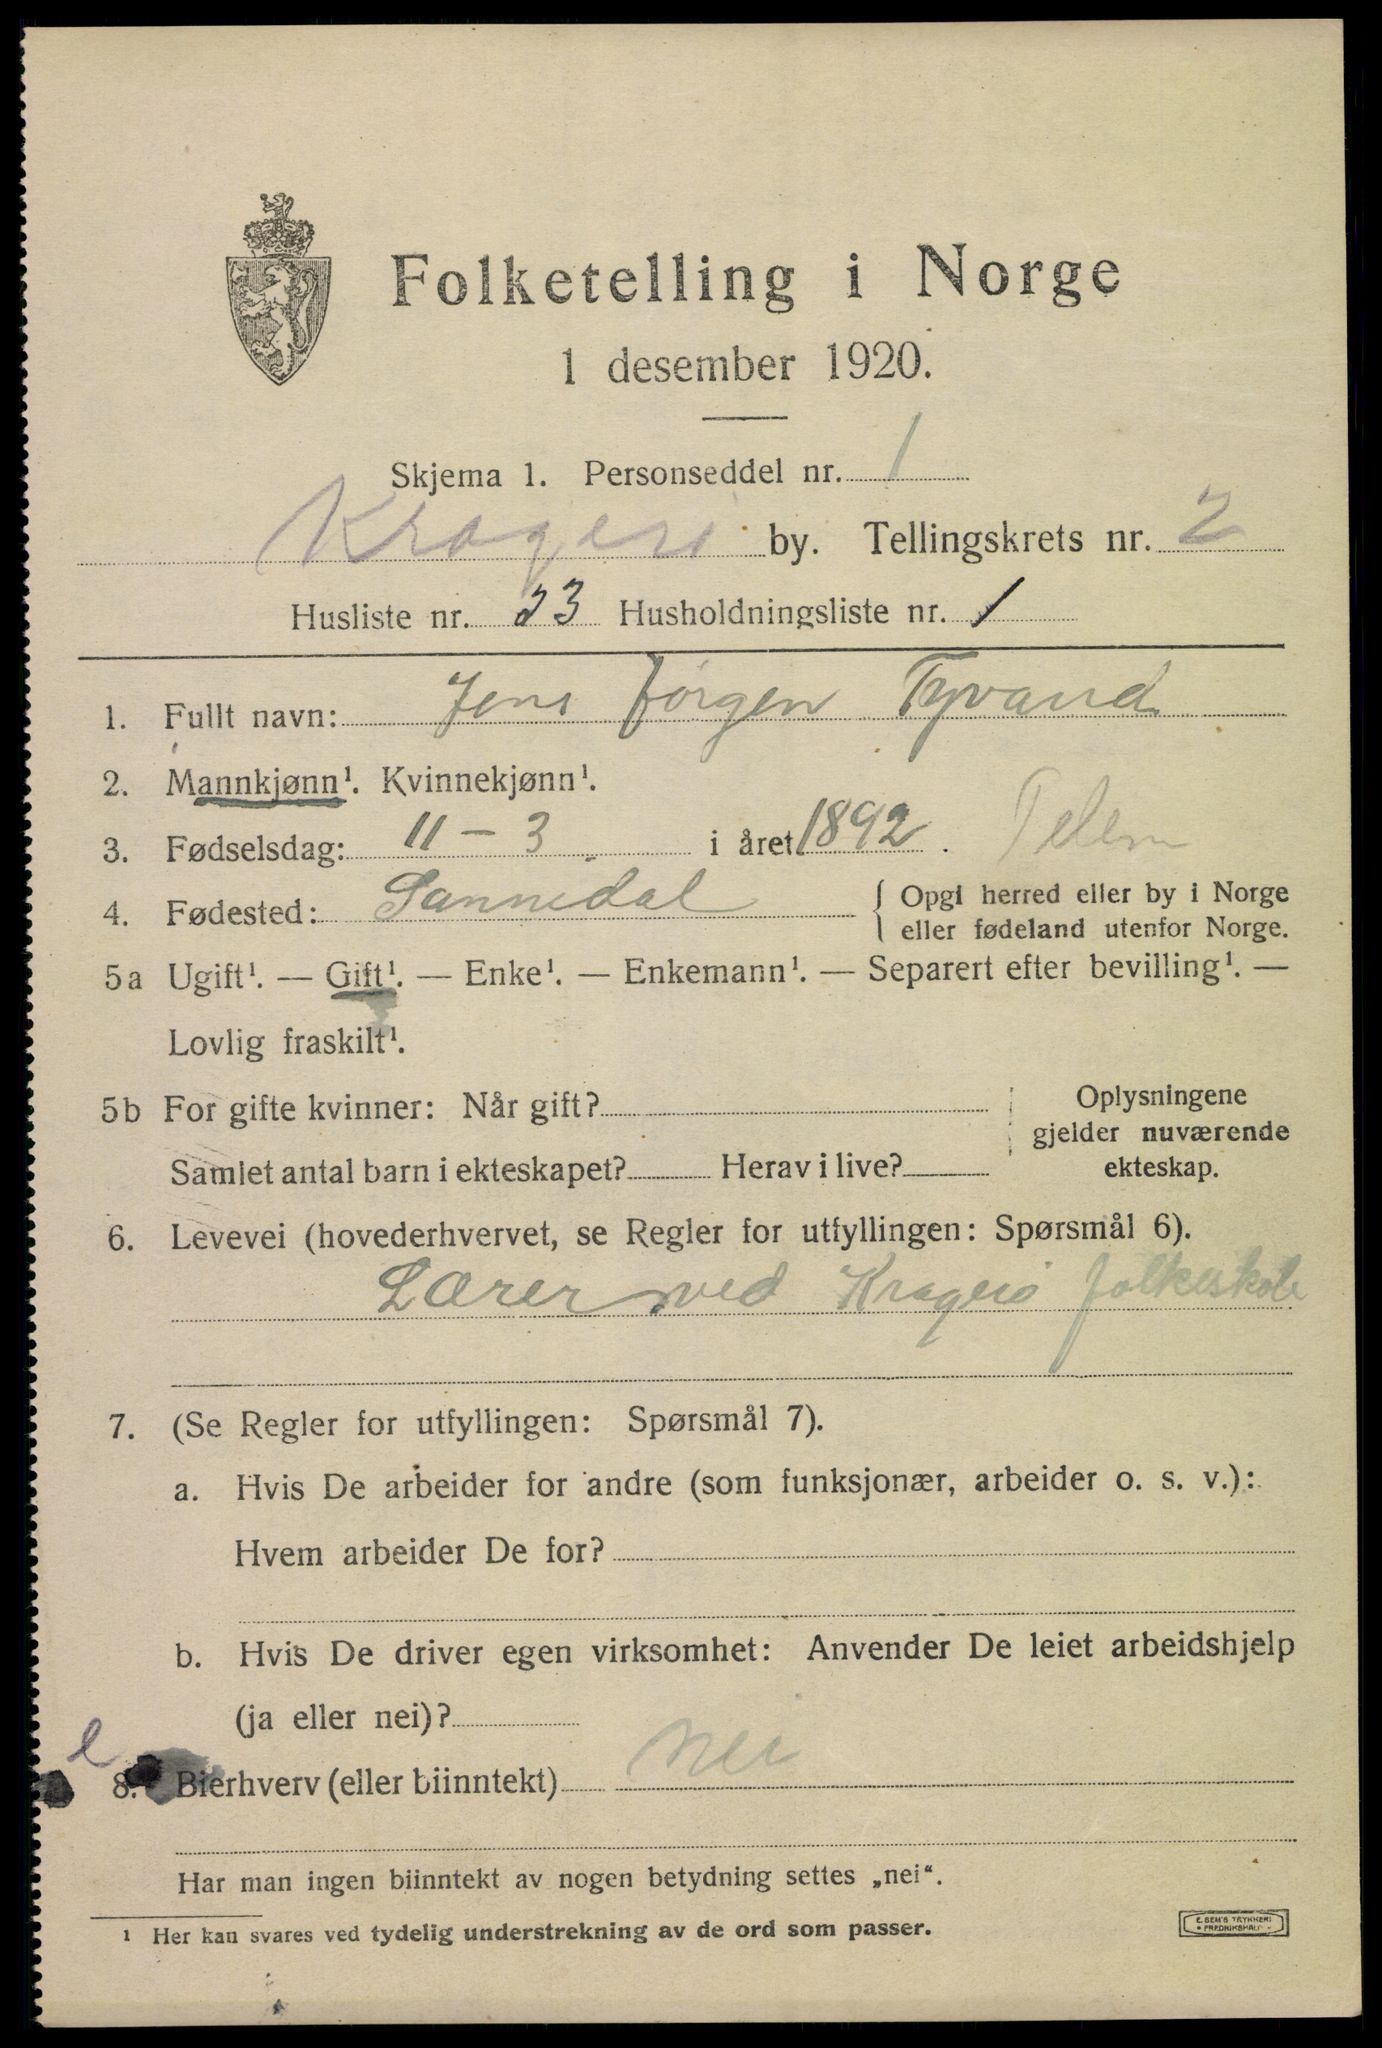 Folketelling i Norge
1 desember 1920.
Skjema 1. Personseddel nr. 1
Kragerø by. Tellingskrets nr. 2
Husliste nr. 23 Husholdningsliste nr. 1
1. Fullt navn: Jens Jørgen Tyvand
2. Mannkjønn¹. Kvinnekjønn¹.
3. Fødselsdag: 11 - 3 i året 1892. Telem
4. Fødested: Sannidal { Opgi herred eller by i Norge
eller fødeland utenfor Norge.
5a Ugift¹. — Gift¹. — Enke¹. — Enkemann¹. — Separert efter bevilling¹. —
Lovlig fraskilt¹.
5b For gifte kvinner: Når gift? Oplysningene
gjelder nuværende
Samlet antal barn i ekteskapet? Herav i live? ekteskap.
6. Levevei (hovederhvervet, se Regler for utfyllingen: Spørsmål 6).
Lærer ved Kragerø folkeskole
7. (Se Regler for utfyllingen: Spørsmål 7).
a. Hvis De arbeider for andre (som funksjonær, arbeider o. s. v.):
Hvem arbeider De for?
b. Hvis De driver egen virksomhet: Anvender De leiet arbeidshjelp
(ja eller nei)?
e
8. Bierhverv (eller biinntekt) Nei
Har man ingen biinntekt av nogen betydning settes „nei“.
¹ Her kan svares ved tydelig understrekning av de ord som passer.
E. SEM'S TRYKKERI
• FREDRIKSHALD •